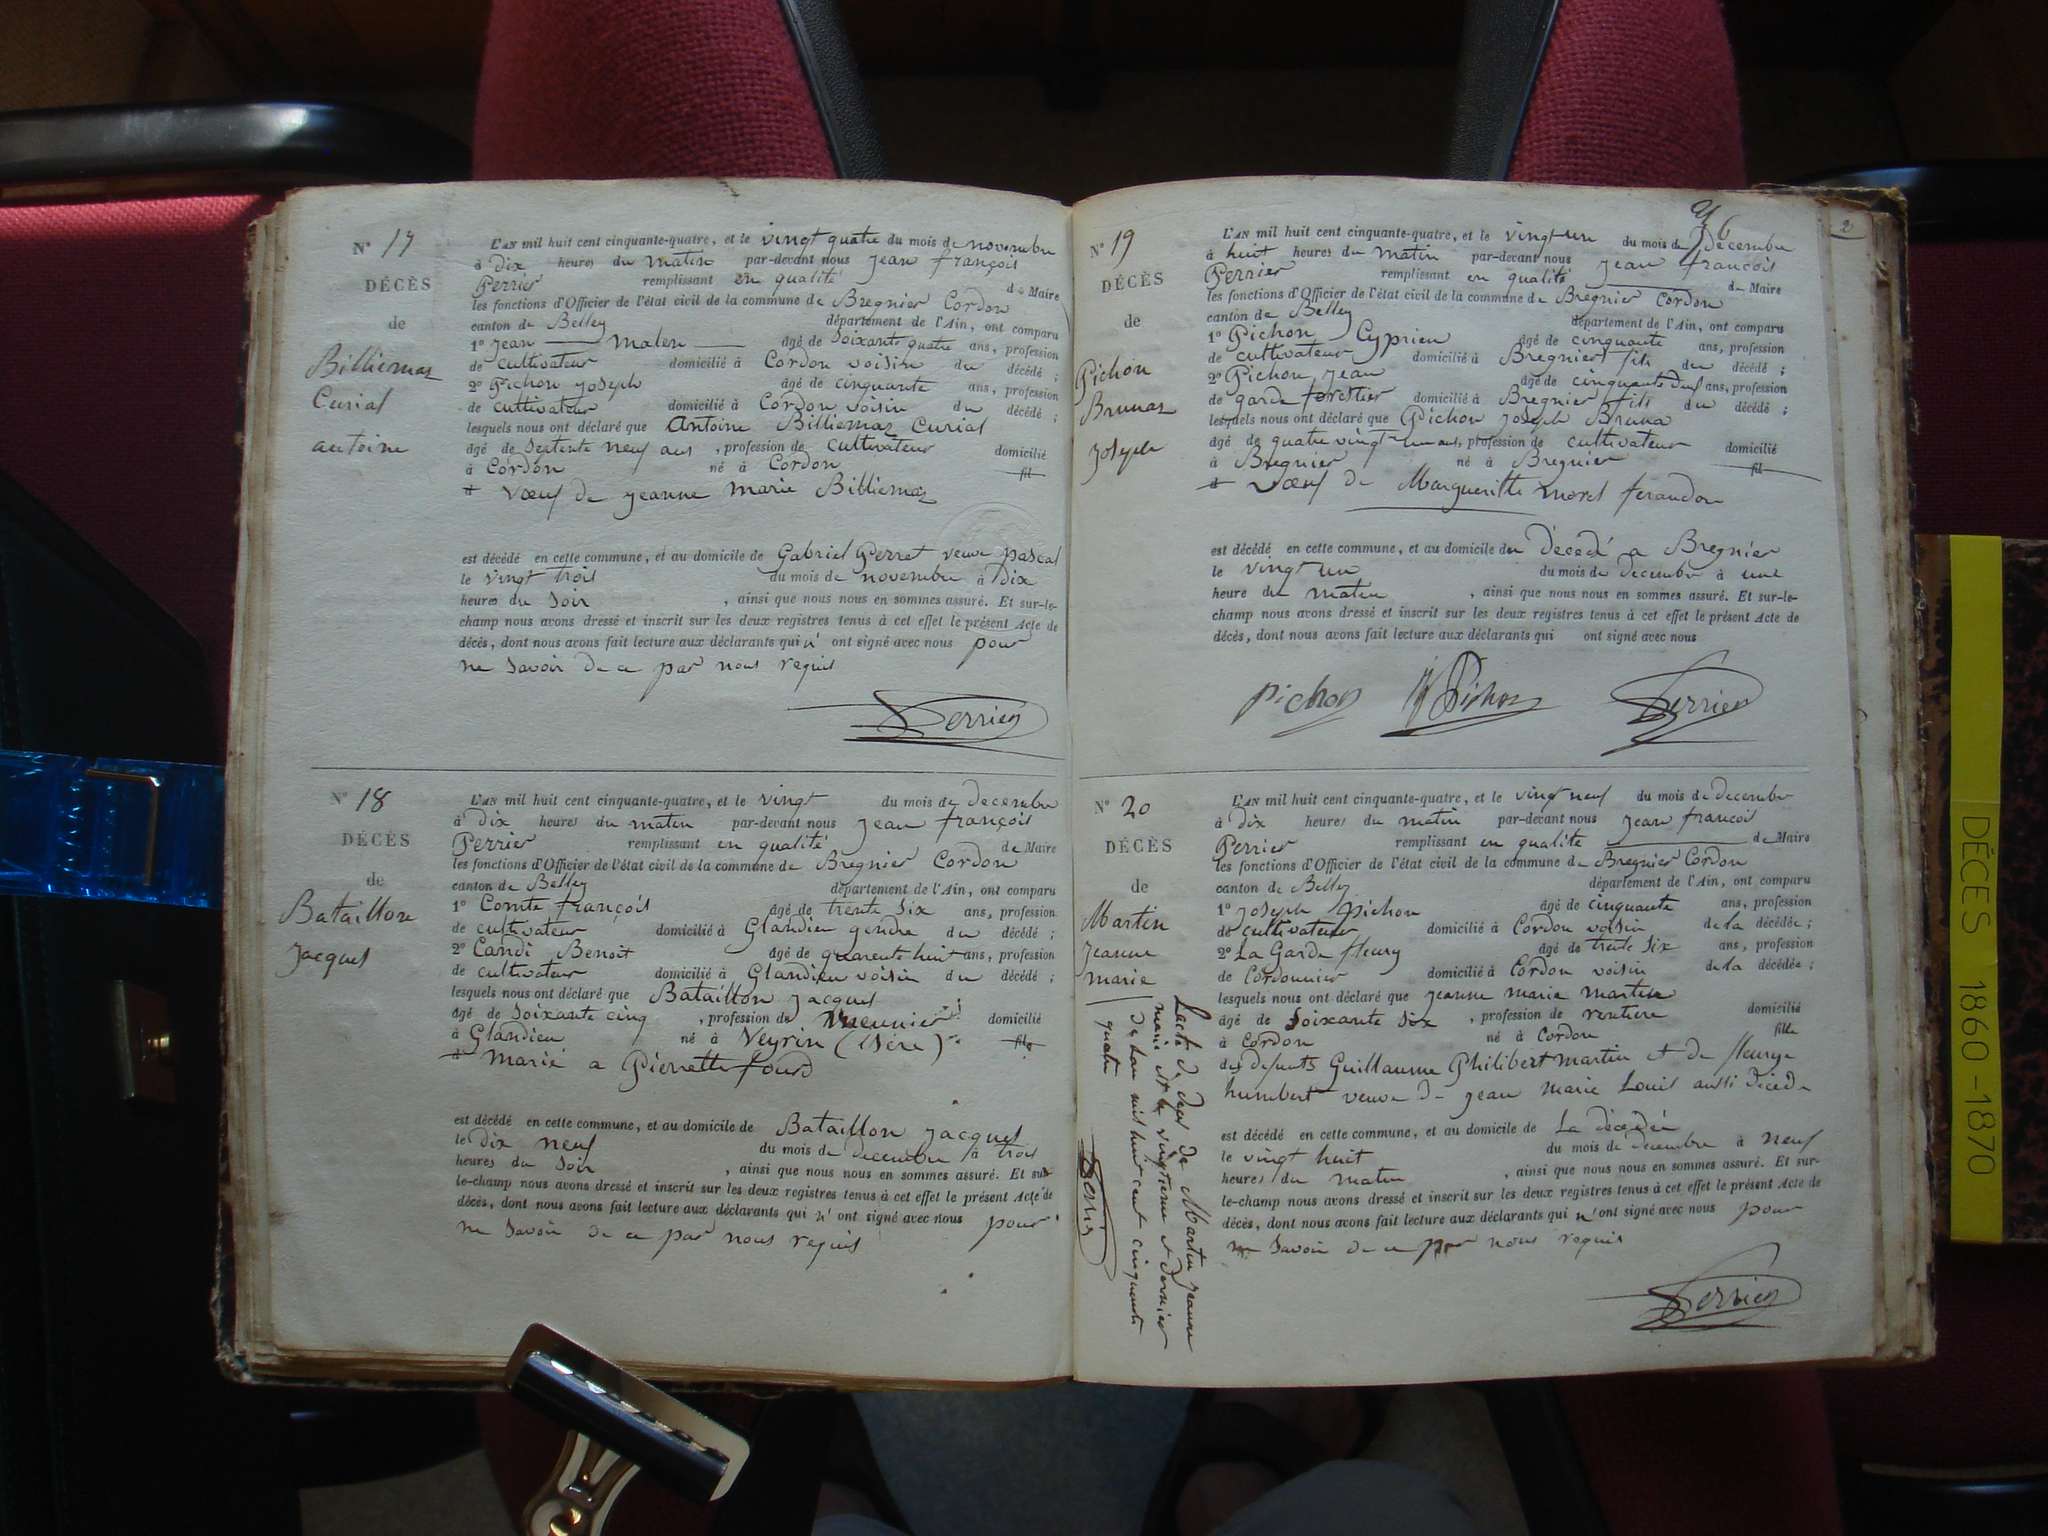 N° 17
DÉCÈS
de
Billiemaz
Curial
antoine
L'AN mil huit cent cinquante-quatre, et le vingt quatre du mois de novembre
à dix heures du matin par-devant nous jean françois
Perrier remplissant en qualité de Maire
les fonctions d'Officier de l'état civil de la commune de Bregnier Cordon
canton de Belley département de l'Ain, ont comparu
1° jean maten âgé de soixante quatre ans, profession
de cultivateur domicilié à Cordon voisin du décédé ;
2° Pichon joseph âgé de cinquante ans, profession
de cultivateur domicilié à Cordon voisin du décédé ;
lesquels nous ont déclaré que Antoine Billiemaz Curial
âgé de septente neuf ans, profession de cultivateur domicilié
à Cordon né à Cordon fil
et vœuf de jeanne marie Billiemaz
est décédé en cette commune, et au domicile de Gabriel Perret veuve pascal
le vingt trois du mois de novembre à dix
heures du soir, ainsi que nous nous en sommes assuré. Et sur-le-
champ nous avons dressé et inscrit sur les deux registres tenus à cet effet le présent Acte de
décès, dont nous avons fait lecture aux déclarants qui n' ont signé avec nous pour
ne savoir de ce par nous requis
Perrier
N° 18
DÉCÈS
de
Bataillon
jacques
L'AN mil huit cent cinquante-quatre, et le vingt du mois de decembre
à dix heures du matin par-devant nous jean françois
Perrier remplissant en qualité de Maire
les fonctions d'Officier de l'état civil de la commune de Bregnier Cordon
canton de Belley département de l'Ain, ont comparu
1° Comte françois âgé de trente six ans, profession
de cultivateur domicilié à Glandieu gendre du décédé ;
2° Candi Benoit âgé de quarente huit ans, profession
de cultivateur domicilié à Glandieu voisin du décédé ;
lesquels nous ont déclaré que Bataillon jacques
âgé de soixante cinq, profession de meunier domicilié
à Glandieu né à Veyrin (isère) fils
et marié a Pierrette fourd
est décédé en cette commune, et au domicile de Bataillon jacques
le dix neuf du mois de decembre à trois
heures du soir, ainsi que nous nous en sommes assuré. Et sur-
le-champ nous avons dressé et inscrit sur les deux registres tenus à cet effet le présent Acte de
décès, dont nous avons fait lecture aux déclarants qui n' ont signé avec nous pour
ne savoir de ce par nous requis
N° 19
DÉCÈS
de
Pichon
Brunaz
joseph
6
2
L'AN mil huit cent cinquante-quatre, et le vingt un du mois de decembre
à huit heures du matin par-devant nous jean françois
Perrier remplissant en qualité de Maire
les fonctions d'Officier de l'état civil de la commune de Bregnier Cordon
canton de Belley département de l'Ain, ont comparu
1° Pichon Cyprien âgé de cinquante ans, profession
de cultivateur domicilié à Bregnier fils du décédé ;
2° Pichon jean âgé de cinquante deux ans, profession
de garde forestier domicilié à Bregnier fils du décédé ;
lesquels nous ont déclaré que Pichon joseph Bruna
âgé de quatre vingt un ans, profession de cultivateur domicilié
à Bregnier né à Bregnier fil
et vœuf de Margueritte morel ferandon
est décédé en cette commune, et au domicile du décédé a Bregnier
le vingt un du mois de decembre à une
heure du matin, ainsi que nous nous en sommes assuré. Et sur-le-
champ nous avons dressé et inscrit sur les deux registres tenus à cet effet le présent Acte de
décès, dont nous avons fait lecture aux déclarants qui ont signé avec nous
Pichon Pichon Perrier
N° 20
DÉCÈS
de
Martin
jeanne
marie
L'AN mil huit cent cinquante-quatre, et le vingt neuf du mois de decembre
à dix heures du matin par-devant nous jean francois
Perrier remplissant en qualité de Maire
les fonctions d'Officier de l'état civil de la commune de Bregnier Cordon
canton de Belley département de l'Ain, ont comparu
1° joseph pichon âgé de cinquante ans, profession
de cultivateur domicilié à Cordon voisin de la décédée ;
2° La Garde fleury âgé de trente six ans, profession
de Cordonnier domicilié à Cordon voisin de la décédée ;
lesquels nous ont déclaré que jeanne marie martin
âgé de soixante six, profession de rentiere domicilié
à Cordon né à Cordon fille
des defunts Guillaume Philibert martin et de fleurye
humbert veuve de jean marie Louis aussi décédé
est décédé en cette commune, et au domicile de La décédée
le vingt huit du mois de decembre à neuf
heures du matin, ainsi que nous nous en sommes assuré. Et sur-
le-champ nous avons dressé et inscrit sur les deux registres tenus à cet effet le présent Acte de
décès, dont nous avons fait lecture aux déclarants qui n' ont signé avec nous pour
ne savoir de ce par nous requis
Perrier
L'acte de deces de Martin jeanne
marie est le vingtieme et dernier
de l'an mil huit cent cinquante
quatre
Perrier
DÉCES 1860-1870